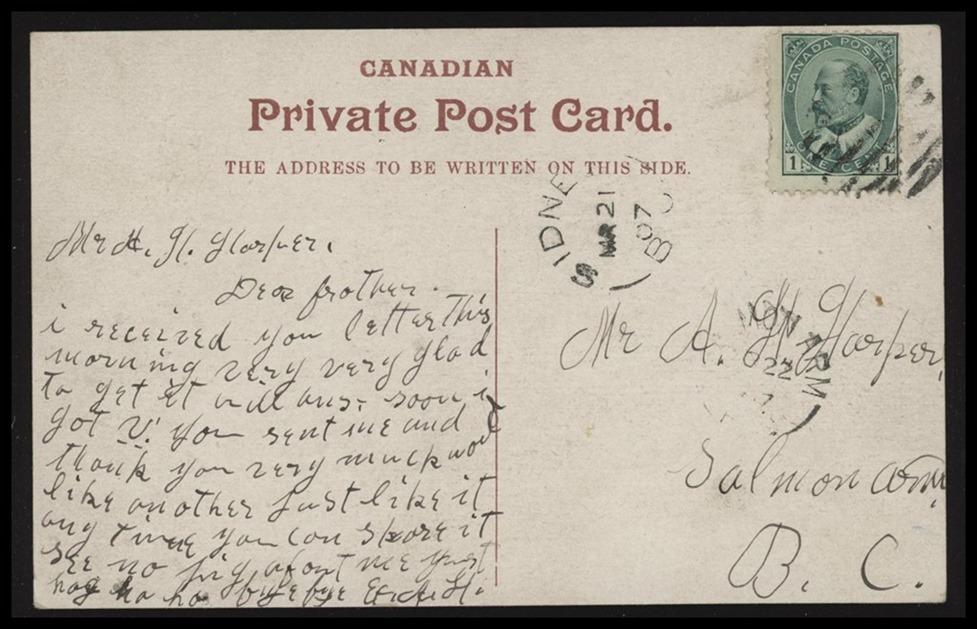 CANADIAN
Private Post Card.
THE ADDRESS TO BE WRITTEN ON THIS SIDE.
CANADA POSTAGE
1 ONE CENT 1
SIDNEY
MR 21
07
B C
Mr A. H. Harper.
Dear brother.
i received you letter this
morning very very glad
to get it will ans: soon i
got V. you sent me and
thank you very much
like another just like it
any time you can spare it
see no about me just
hog ha ha bye bye
Mr A. H. Harper,
Salmon arm,
B. C.
MON ARM
22
7